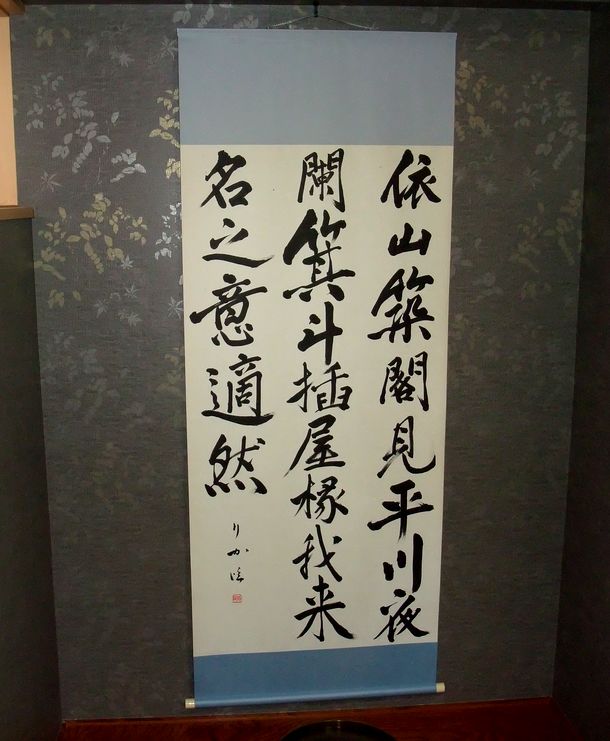 依山築閣見平川夜
闌箕斗插屋椽我来
名之意適然
りか